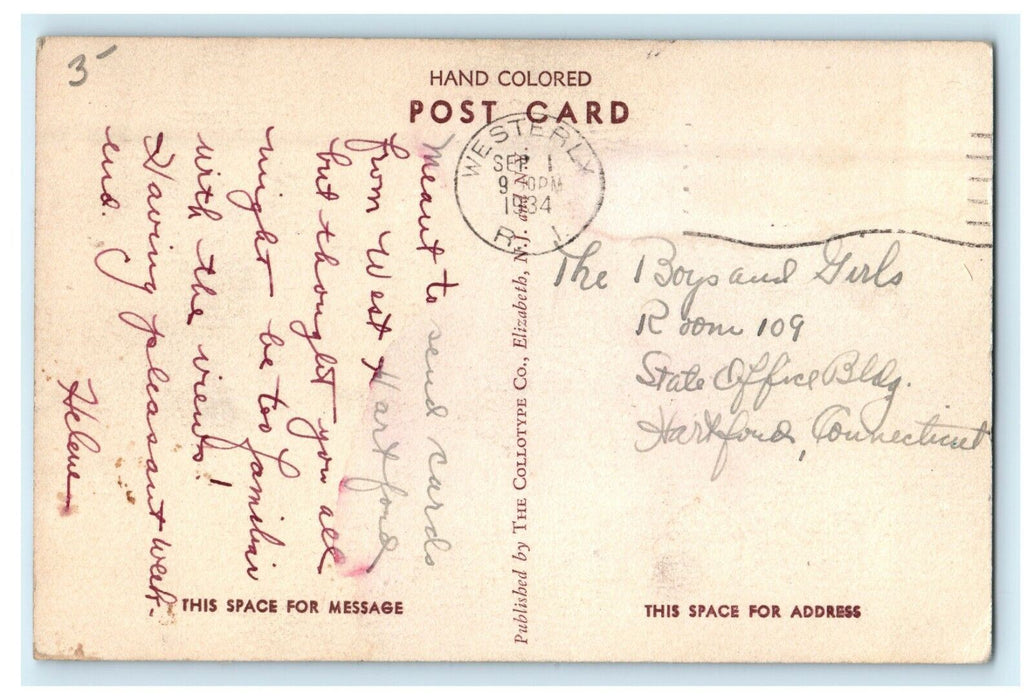 3
HAND COLORED
POST CARD
WESTERLY
SEP 1
9 PM
1934
R. I.
Meant to send cards
from West Hartford
but thought you all
might be too familiar
with the views!
Having pleasant week-
end.
Helene
Published by THE COLLOTYPE CO., Elizabeth, N. J. and
The Boys and Girls
Room 109
State Office Bldg.
Hartford, Connecticut
THIS SPACE FOR MESSAGE
THIS SPACE FOR ADDRESS